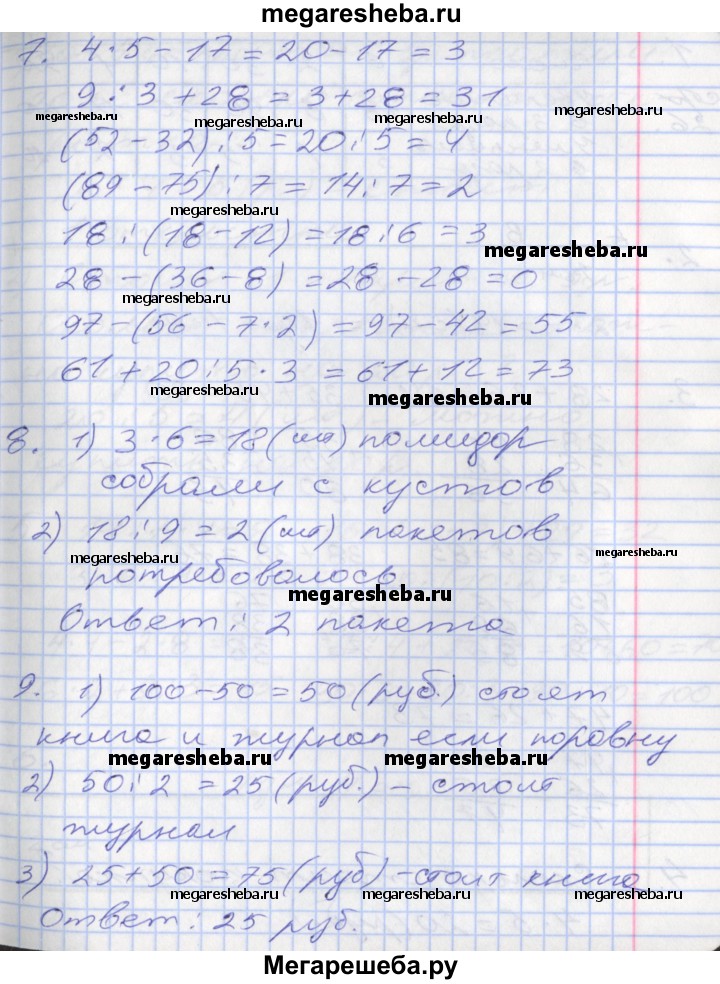 megaresheba.ru
7. 4·5-17=20-17=3
9:3+28=3+28=31
megaresheba.ru megaresheba.ru megaresheba.ru
(52-32):5=20:5=4
(89-75):7=14:7=2
megaresheba.ru
18:(18-12)=18:6=3
megaresheba.ru
28-(36-8)=28-28=0
megaresheba.ru
97-(56-7·2)=97-42=55
61+20:5·3=61+12=73
megaresheba.ru
8. 1) 3·6=18(шт) помидор
собрали с кустов
2) 18:9=2(шт) пакетов
megaresheba.ru megaresheba.ru
потребовалось
megaresheba.ru
Ответ: 2 пакета
9. 1) 100-50=50(руб.) стоят
книга и журнал если поровну
megaresheba.ru megaresheba.ru
2) 50:2=25(руб.) - стоит
журнал
3) 25+50=75(руб) - стоит книга
megaresheba.ru megaresheba.ru
Ответ: 25 руб.
Мегарешеба.ру